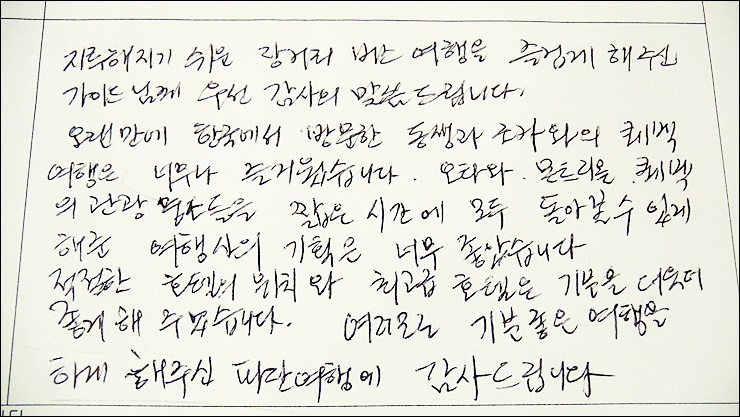 지루해지기 쉬운 장거리 버스 여행을 즐겁게 해주신
가이드님께 우선 감사의 말씀드립니다.
오랜만에 한국에서 방문한 동생과 조카와의 퀘벡
여행은 너무나 즐거웠습니다. 오타와. 몬트리올. 퀘벡
의 관광 명소들을 짧은 시간에 모두 돌아볼 수 있게
해준 여행사의 기획은 너무 좋았습니다
적절한 호텔의 위치와 최고급 호텔은 기분을 더욱더
좋게 해 주었습니다. 여러모로 기분좋은 여행을
하게 해주신 파란여행에 감사드립니다